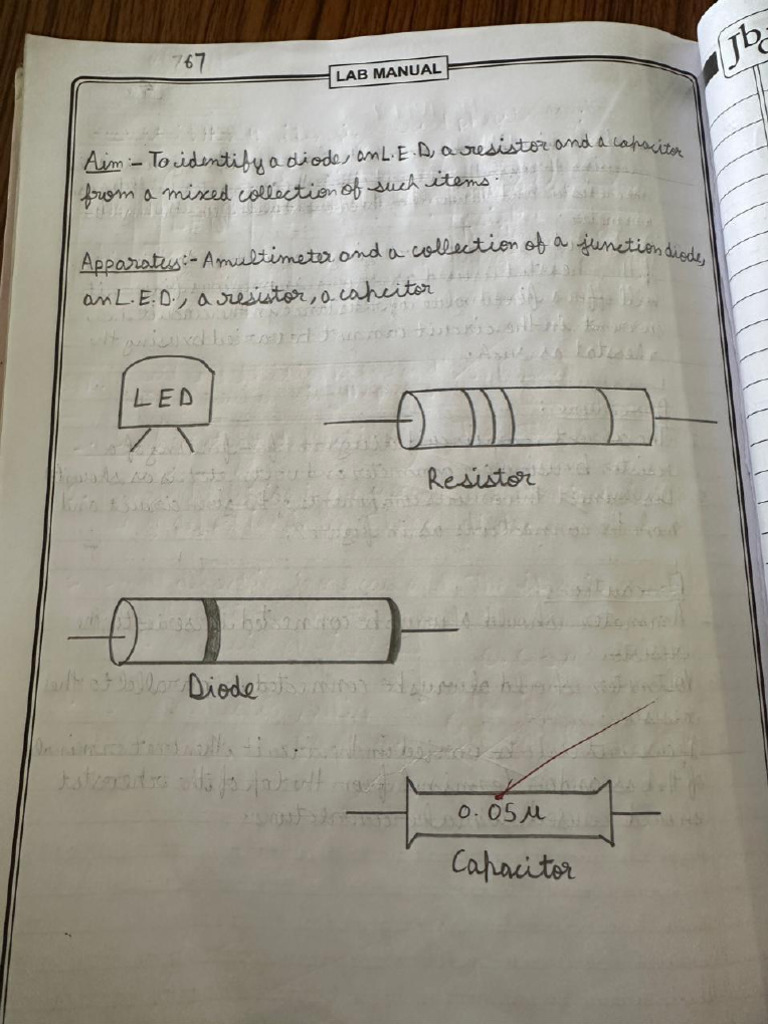 767
LAB MANUAL
Jb
Aim:- To identify a diode, an L.E.D, a resistor and a capacitor
from a mixed collection of such items.
Apparatus:- A multimeter and a collection of a junction diode,
an L.E.D., a resistor, a capcitor
LED
Resistor
Diode
0.05μ
Capacitor